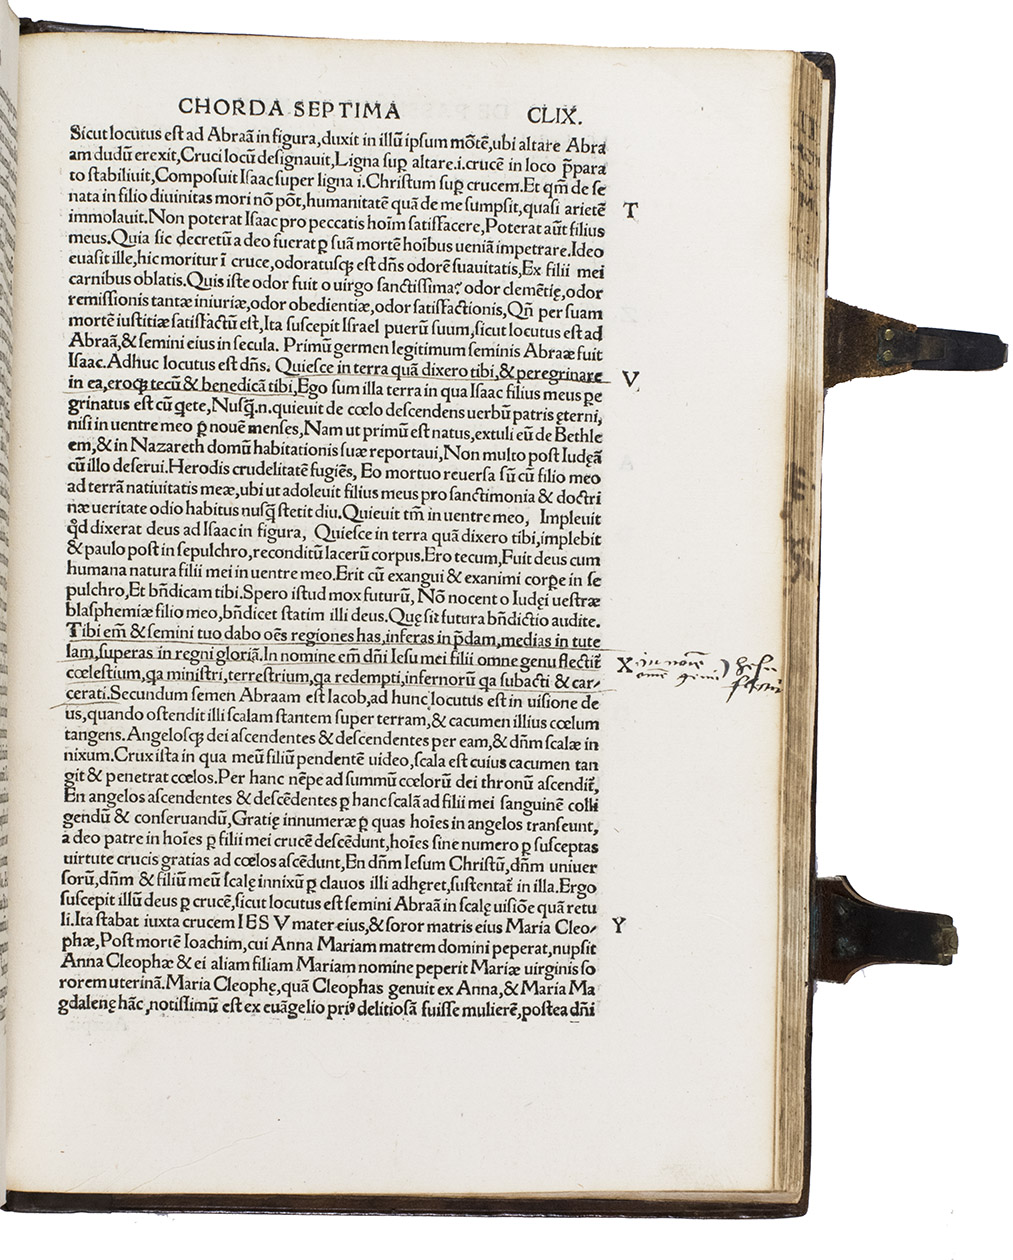 CHORDA SEPTIMA CLIX.
Sicut locutus est ad Abraã in figura, duxit in illũ ipsum mõtẽ, ubi altare Abra
am dudũ erexit, Cruci locũ designauit, Ligna suꝑ altare .i. crucẽ in loco p̃para
to stabiliuit, Composuit Isaac super ligna i. Christum suꝑ crucem. Et qm̃ de se
nata in filio diuinitas mori nõ põt, humanitatẽ quã de me sumpsit, quasi arietẽ T
immolauit. Non poterat Isaac pro peccatis hoĩm satisfacere, Poterat aũt filius
meus. Quia sic decretũ a deo fuerat ꝑ suã mortẽ hoĩbus ueniã impetrare. Ideo
euasit ille, hic moritur ĩ cruce, odoratusqꝫ est dñs odorẽ suauitatis, Ex filii mei
carnibus oblatis. Quis iste odor fuit o uirgo sanctissima? odor clemẽtię, odor
remissionis tantæ iniuriæ, odor obedientiæ, odor satisfactionis, Qñ per suam
mortẽ iustitiæ satisfactũ est, Ita suscepit Israel puerũ suum, sicut locutus est ad
Abraã, & semini eius in secula. Primũ germen legitimum seminis Abraæ fuit
Isaac. Adhuc locutus est dñs. Quiesce in terra quã dixero tibi, & peregrinare V
in ea, eroqꝫ tecũ & benedicã tibi, Ego sum illa terra in qua Isaac filius meus pe
grinatus est cũ q̃ete, Nusq̃ .n. quieuit de cœlo descendens uerbũ patris ęterni,
nisi in uentre meo ꝑ nouẽ menses, Nam ut primũ est natus, extuli eũ de Bethle
em, & in Nazareth domũ habitationis suæ reportaui, Non multo post Iudęã
cũ illo deserui. Herodis crudelitatẽ fugiẽs, Eo mortuo reuersa sũ cũ filio meo
ad terrã natiuitatis meæ, ubi ut adoleuit filius meus pro sanctimonia & doctri
næ ueritate odio habitus nusq̃ stetit diu. Quieuit tm̃ in uentre meo, Impleuit
qd̃ dixerat deus ad Isaac in figura, Quiesce in terra quã dixero tibi, implebit
& paulo post in sepulchro, reconditũ lacerũ corpus. Ero tecum, Fuit deus cum
humana natura filii mei in uentre meo. Erit cũ exangui & exanimi corꝑe in se
pulchro, Et bñdicam tibi. Spero istud mox futurũ, Nõ nocent o Iudęi uestræ
blasphemiæ filio meo, bñdicet statim illi deus. Quę sit futura bñdictio audite.
Tibi em̃ & semini tuo dabo oẽs regiones has, inferas in p̃dam, medias in tute
lam, superas in regni gloriã. In nomine em̃ dñi Iesu mei filii omne genu flectit̃ X
cœlestium, qa ministri, terrestrium, qa redempti, infernorũ qa subacti & car⸗
cerati. Secundum semen Abraam est Iacob, ad hunc locutus est in uisione de
us, quando ostendit illi scalam stantem super terram, & cacumen illius cœlum
tangens. Angelosqꝫ dei ascendentes & descendentes per eam, & dñm scalæ in
nixum. Crux ista in qua meũ filiũ pendentẽ uideo, scala est cuius cacumen tan
git & penetrat cœlos. Per hanc nẽpe ad summũ cœlorũ dei thronũ ascendit̃,
En angelos ascendentes & descẽdentes ꝑ hanc scalã ad filii mei sanguinẽ colli
gendũ & conseruandũ, Gratię innumeræ ꝑ quas hoĩes in angelos transeunt,
a deo patre in hoĩes ꝑ filii mei crucẽ descẽdunt, hoĩes sine numero ꝑ susceptas
uirtute crucis gratias ad cœlos ascẽdunt, En dñm Iesum Christũ, dñm uniuer
sorũ, dñm & filiũ meũ scalę innixũ ꝑ clauos illi adhęret, sustentat̃ in illa. Ergo
suscepit illũ deus ꝑ crucẽ, sicut locutus est semini Abraã in scalę uisiõe quã retu
li. Ita stabat iuxta crucem IESV mater eius, & soror matris eius Maria Cleo⸗ Y
phæ, Post mortẽ Ioachim, cui Anna Mariam matrem domini peperat, nupsit
Anna Cleophæ & ei aliam filiam Mariam nomine peperit Mariæ uirginis so
rorem uterinã. Maria Cleophę, quã Cleophas genuit ex Anna, & Maria Ma
gdalenę hãc, notissimũ est ex euãgelio priꝰ delitiosã fuisse mulierẽ, postea dñi